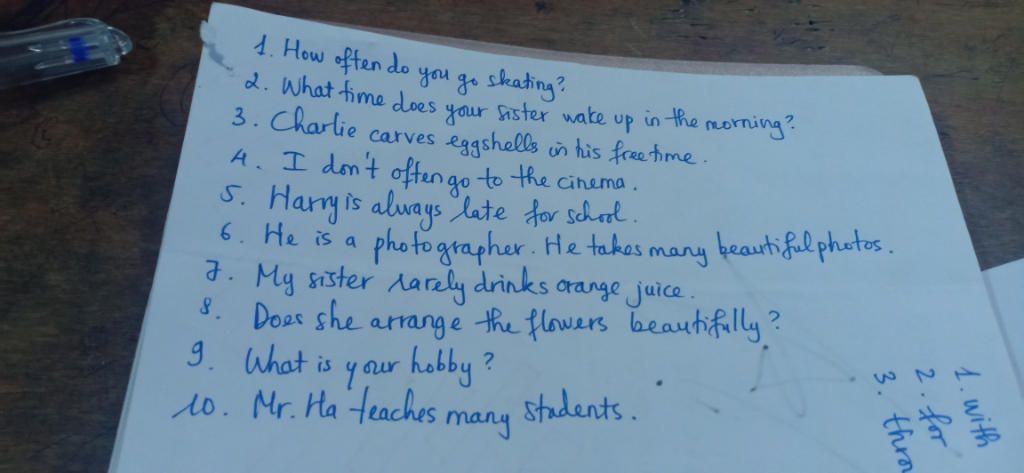 1. How often do you go skating?
2. What time does your sister wake up in the morning?
3. Charlie carves eggshells in his free time.
4. I don't often go to the cinema.
5. Harry is always late for school.
6. He is a photographer. He takes many beautiful photos.
7. My sister rarely drinks orange juice.
8. Does she arrange the flowers beautifully?
9. What is your hobby?
10. Mr. Ha teaches many students.
1. with
2. for
3.